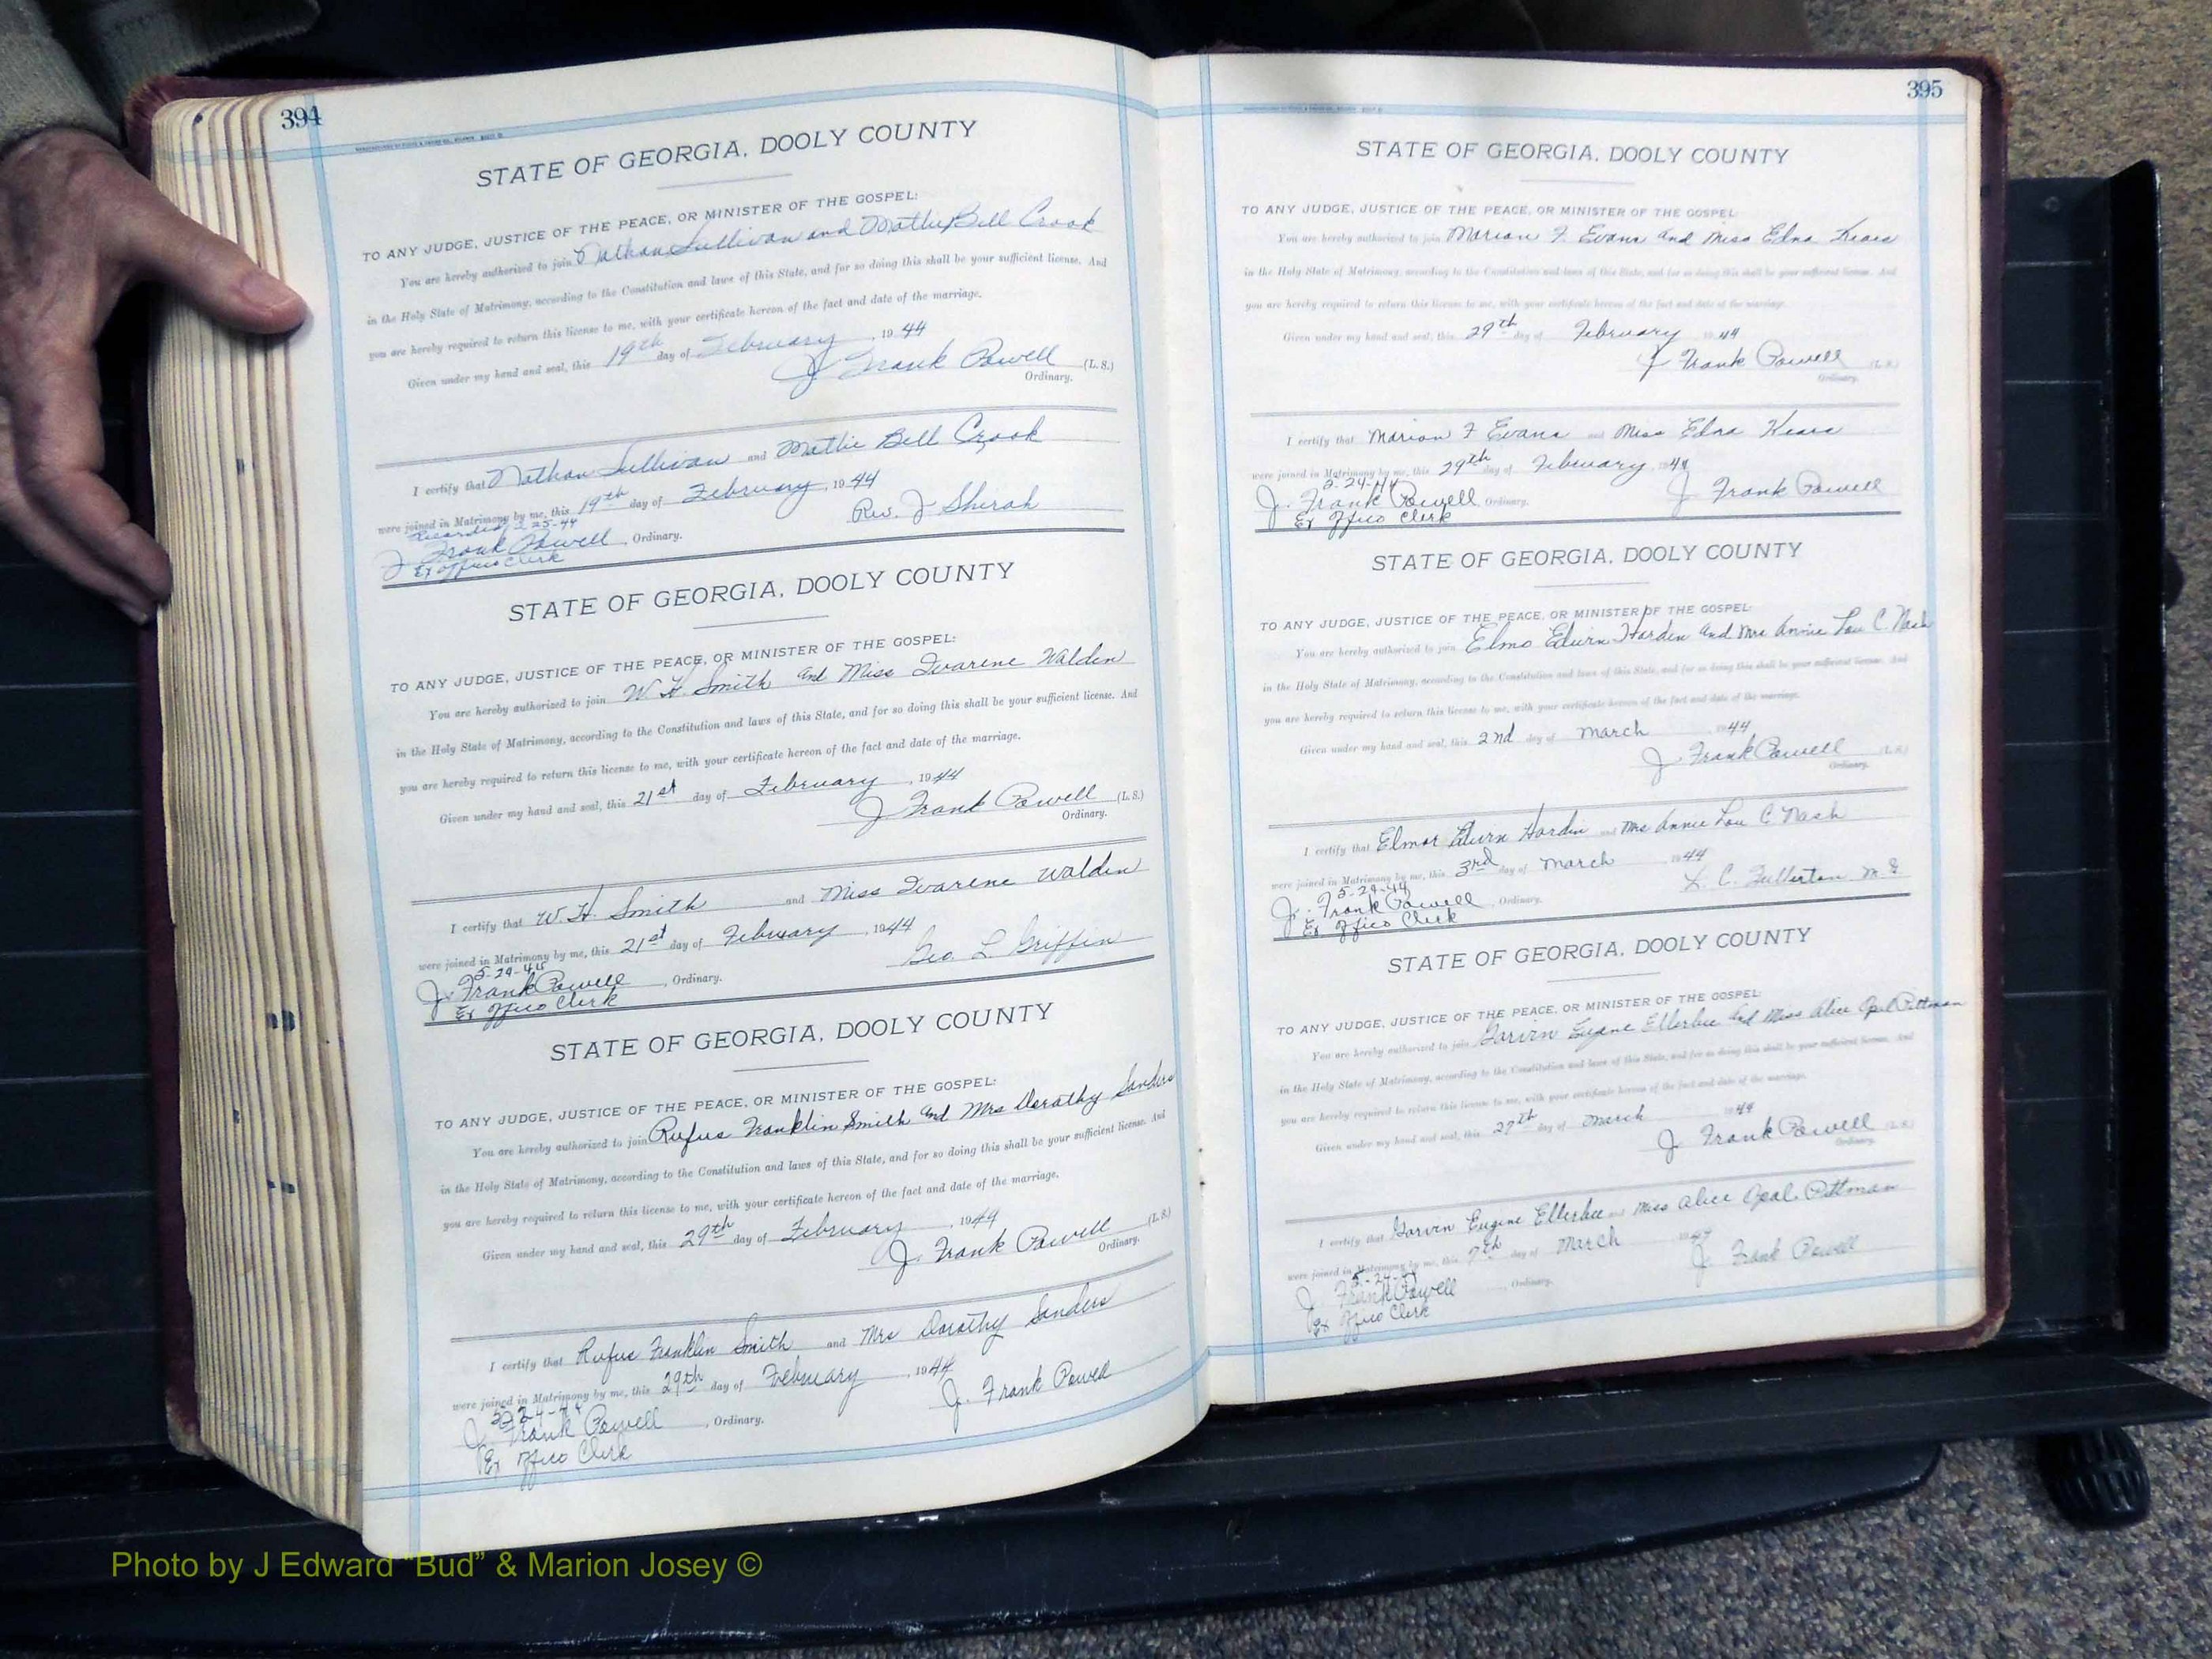 394
STATE OF GEORGIA, DOOLY COUNTY
TO ANY JUDGE, JUSTICE OF THE PEACE, OR MINISTER OF THE GOSPEL:
You are hereby authorized to join Nathan Sullivan and Mathie Bell Crook
in the Holy State of Matrimony, according to the Constitution and laws of this State, and for so doing this shall be your sufficient license. And
you are hereby required to return this license to me, with your certificate hereon of the fact and date of the marriage.
Given under my hand and seal, this 19th day of February, 1944
J Frank Powell (L. S.)
Ordinary.
I certify that Nathan Sullivan and Mathie Bell Crook
were joined in Matrimony by me, this 19th day of February, 1944
Recorded 25-44 Rev. J Shirah
J Frank Powell, Ordinary.
Ex offico Clerk
STATE OF GEORGIA, DOOLY COUNTY
TO ANY JUDGE, JUSTICE OF THE PEACE, OR MINISTER OF THE GOSPEL:
You are hereby authorized to join W. H. Smith and Miss Ivarene Walden
in the Holy State of Matrimony, according to the Constitution and laws of this State, and for so doing this shall be your sufficient license. And
you are hereby required to return this license to me, with your certificate hereon of the fact and date of the marriage.
Given under my hand and seal, this 21st day of February, 1944
J Frank Powell (L. S.)
Ordinary.
I certify that W. H. Smith and Miss Ivarene Walden
were joined in Matrimony by me, this 21st day of February, 1944
Geo. L Griffin
J. Frank Powell, Ordinary.
Ex offico Clerk
STATE OF GEORGIA, DOOLY COUNTY
TO ANY JUDGE, JUSTICE OF THE PEACE, OR MINISTER OF THE GOSPEL:
You are hereby authorized to join Rufus Franklin Smith and Mrs Dorathy Sanders
in the Holy State of Matrimony, according to the Constitution and laws of this State, and for so doing this shall be your sufficient license. And
you are hereby required to return this license to me, with your certificate hereon of the fact and date of the marriage.
Given under my hand and seal, this 29th day of February, 1944
J. Frank Powell (L. S.)
Ordinary.
I certify that Rufus Franklin Smith and Mrs Dorathy Sanders
were joined in Matrimony by me, this 29th day of February, 1944
J. Frank Powell
J. Frank Powell, Ordinary.
Ex offico Clerk
395
STATE OF GEORGIA, DOOLY COUNTY
TO ANY JUDGE, JUSTICE OF THE PEACE, OR MINISTER OF THE GOSPEL:
You are hereby authorized to join Marion F. Evans and Miss Edna
in the Holy State of Matrimony, according to the Constitution and laws of this State, and for so doing this shall be your sufficient license. And
you are hereby required to return this license to me, with your certificate hereon of the fact and date of the marriage.
Given under my hand and seal, this 29th day of February 1944
J Frank Powell (L. S.)
Ordinary.
I certify that Marion F Evans and Miss Edna
were joined in Matrimony by me, this 29th day of February, 1944
5-24-44 J Frank Powell
J. Frank Powell, Ordinary.
Ex offico Clerk
STATE OF GEORGIA, DOOLY COUNTY
TO ANY JUDGE, JUSTICE OF THE PEACE, OR MINISTER OF THE GOSPEL:
You are hereby authorized to join Elmo Edwin Hardin and Mrs Annie Lou C. Nash
in the Holy State of Matrimony, according to the Constitution and laws of this State, and for so doing this shall be your sufficient license. And
you are hereby required to return this license to me, with your certificate hereon of the fact and date of the marriage.
Given under my hand and seal, this 2nd day of March 1944
J Frank Powell (L. S.)
Ordinary.
I certify that Elmor Edwin Hardin and Mrs Annie Lou C Nash
were joined in Matrimony by me, this 3rd day of March 1944
5-24-44 L. C. Fullerton M. G
J. Frank Powell, Ordinary.
Ex offico Clerk
STATE OF GEORGIA, DOOLY COUNTY
TO ANY JUDGE, JUSTICE OF THE PEACE, OR MINISTER OF THE GOSPEL:
You are hereby authorized to join Garvin Eugene Ellerbee and Miss Alice Opal Pittman
in the Holy State of Matrimony, according to the Constitution and laws of this State, and for so doing this shall be your sufficient license. And
you are hereby required to return this license to me, with your certificate hereon of the fact and date of the marriage.
Given under my hand and seal, this 27th day of March 1944
J. Frank Powell (L. S.)
Ordinary.
I certify that Garvin Eugene Ellerbee and Miss Alice Opal Pittman
were joined in Matrimony by me, this 7th day of March 1944
J. Frank Powell
J. Frank Powell, Ordinary.
Ex offico Clerk
Photo by J Edward “Bud” & Marion Josey ©